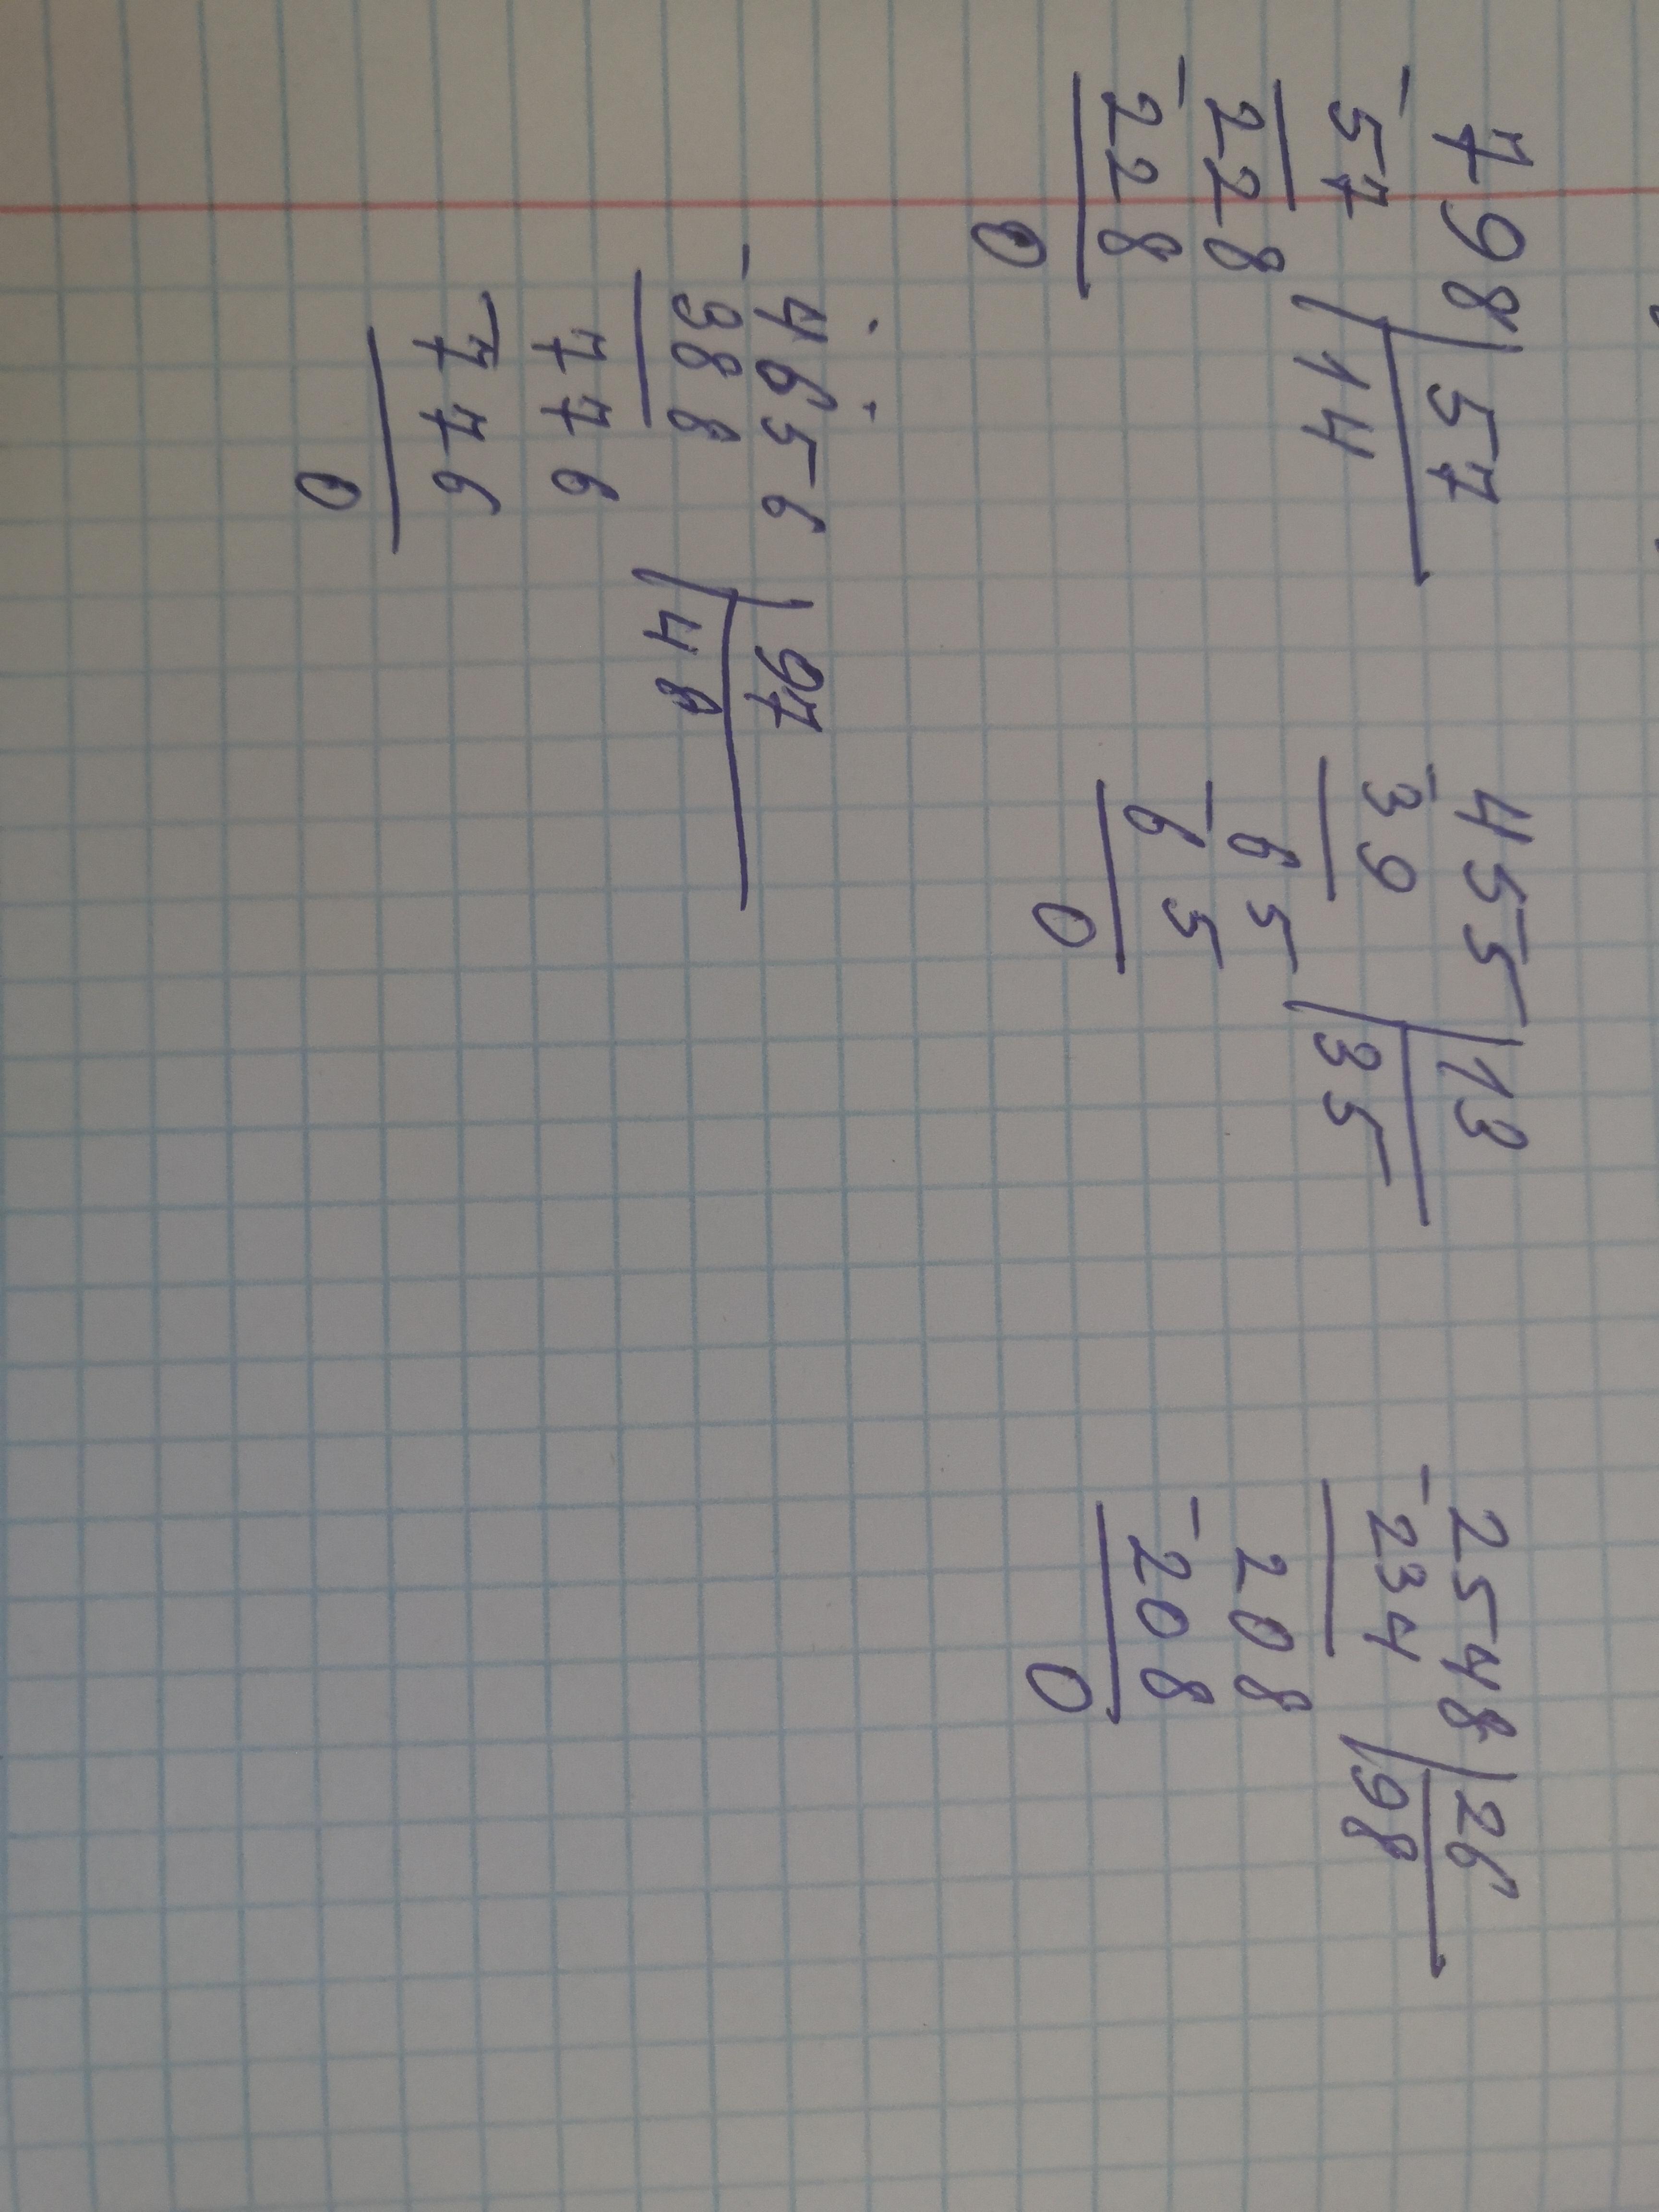 798 | 57
- 57 | 14
228
- 228
0
455 | 13
- 39 | 35
65
- 65
0
2548 | 26
- 234 | 98
208
- 208
0
4656 | 97
- 388 | 48
776
- 776
0